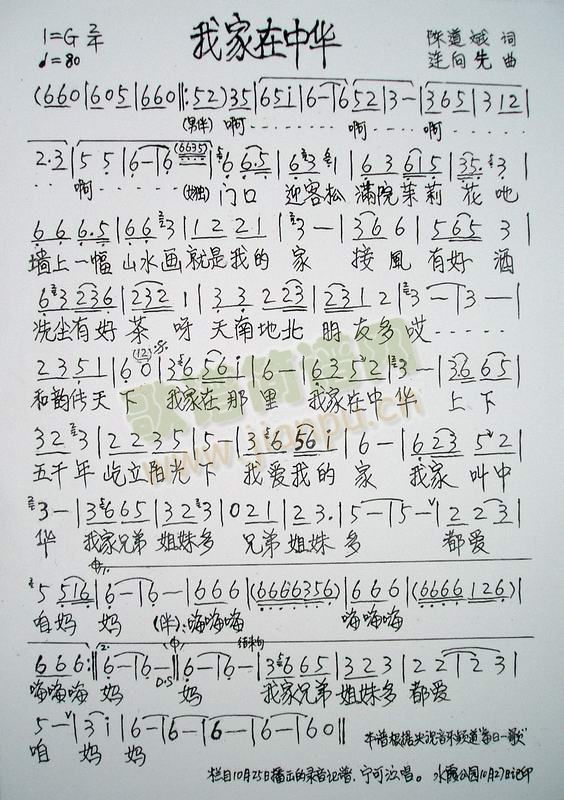 1=G 2/4 我家在中华 陈道斌 词
♩=80 连向先 曲
(660|605|660‖:52)35|651|6-|652|3-|365|312|
(男伴) 啊 啊 啊
2.3|55|6-|6(6635)|66.5|633|6365|35.3|
啊 (女独) 门口 迎客松 满院茉莉 花吔
666.5|663|1221|3-|366|5653|
墙上一幅 山水画 就是我的 家 接風 有好 酒
63236|2321|3323|2312|3-|3-|
洗尘有好 茶 呀 天南地北 朋友多哎
2351|60|36561|6-|6352|3-|3665|
和韵传天 下 我家在那 里 我家在中 华 上下
323|2235|5-|36561|6-|62352|
五千年 屹立阳光 下 我爱我的 家 我家 叫中
3-|3665|323|021|23.|5-|5-|223|
华 我家兄弟 姐妹多 兄弟 姐妹 多 都爱
5516|6-|6-|666|(6666356)|666|(6666126)|
咱妈 妈 (伴):嗨嗨嗨 嗨嗨嗨
结束句
666:‖6-|6-‖6-|6-|3665|323|22|23|
D.S
嗨嗨嗨 妈 妈 我家兄弟 姐妹多 都爱
5-|3i|6-|6-|6-|6-|60‖
咱 妈 妈 本谱根据央视音乐频道"每日一歌"
栏目10月25日播出的录音记谱,宁可泣唱。水霞公园10月27日记印
歌谱简谱网
www.jianpu.cn